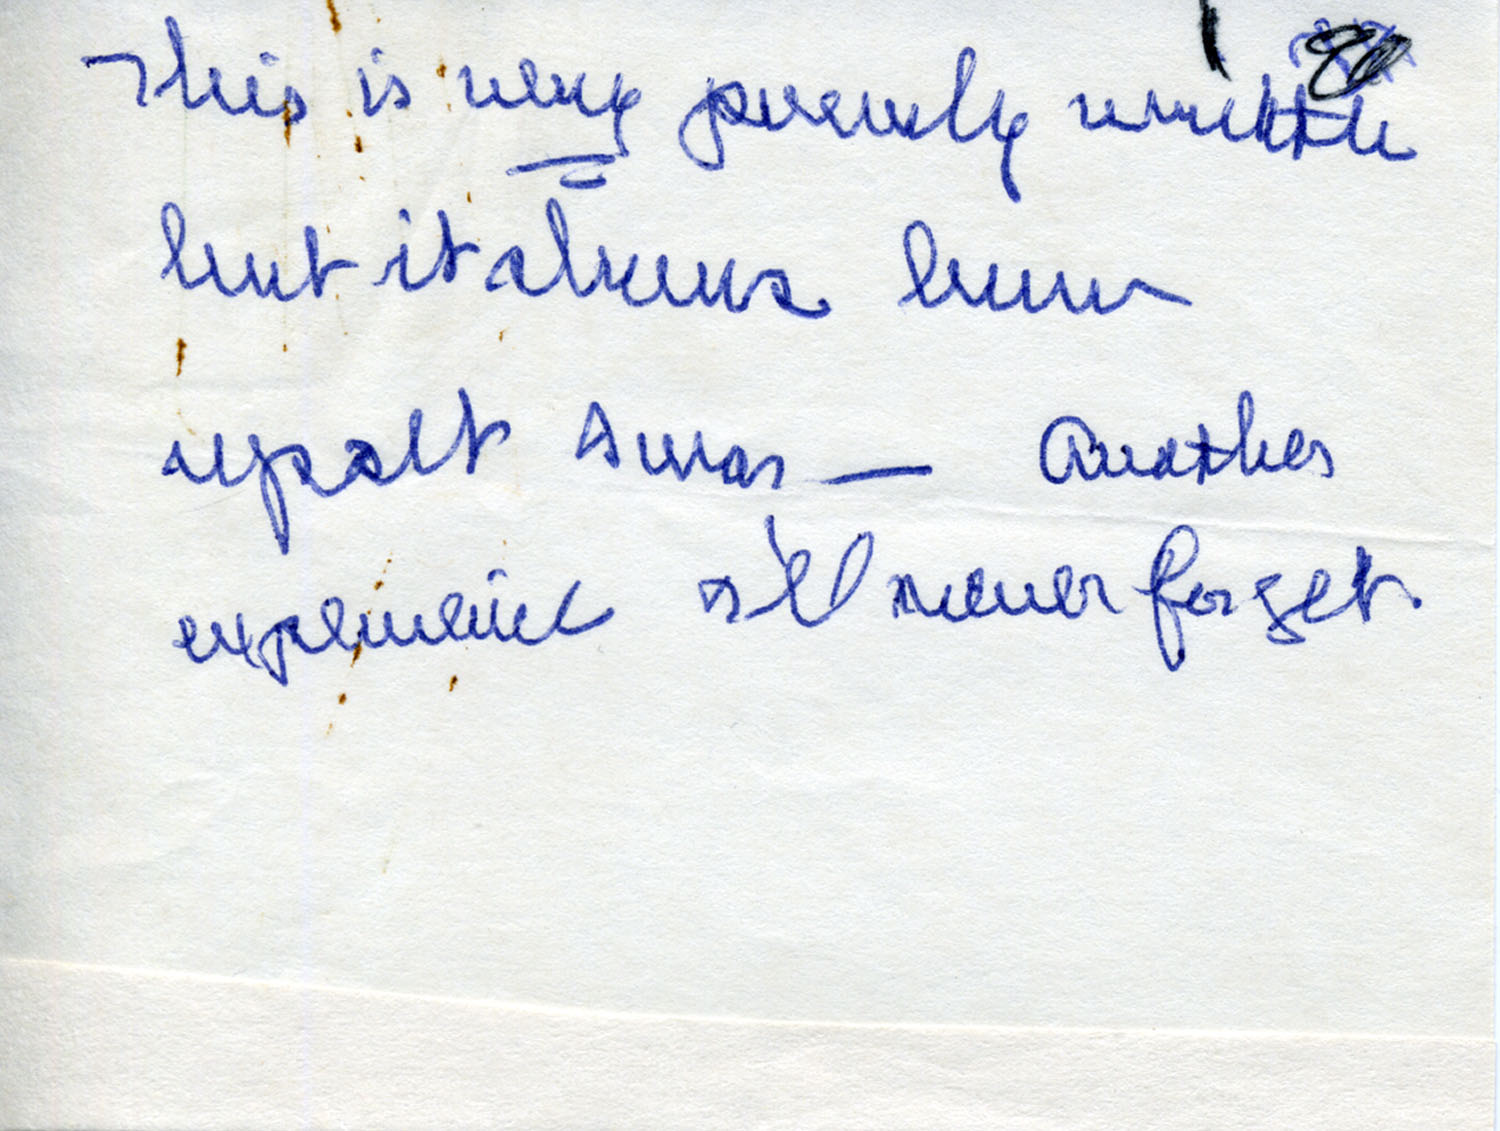 This is very poorly written
but it shows how
upset I was — Another
experience I'll never forget.